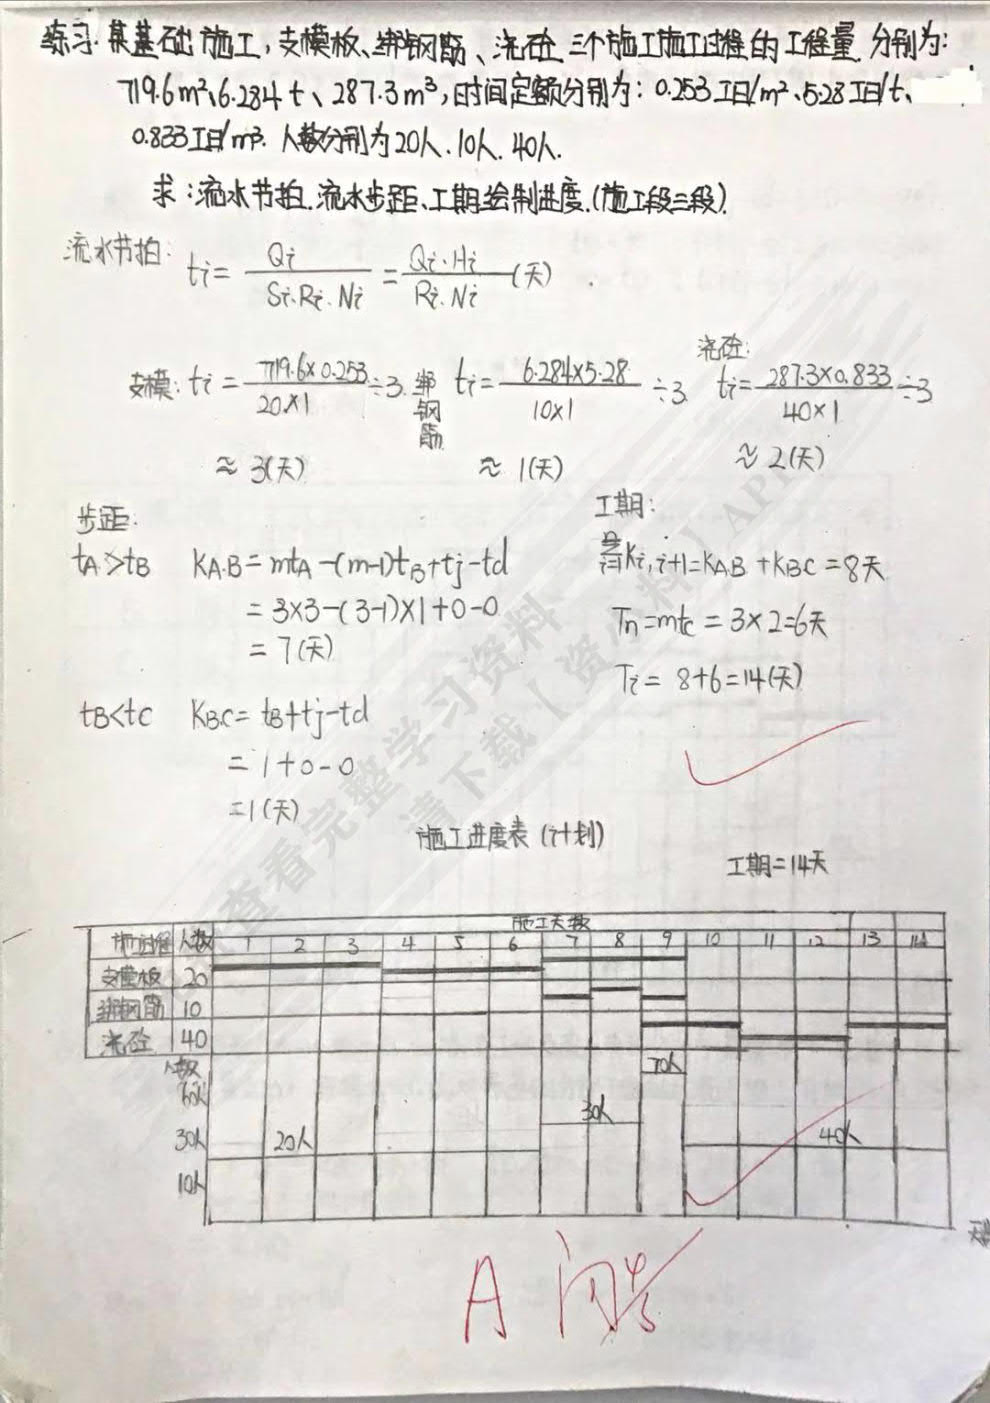 练习:某基础施工,支模板、绑钢筋、浇砼三个施工施工过程的工程量分别为:
719.6m²、6.284t、287.3m³,时间定额分别为:0.253工日/m²、5.28工日/t、
0.833工日/m³. 人数分别为20人.10人.40人.
求:流水节拍.流水步距、工期绘制进度.(施工段三段)
流水节拍: ti= Qi/Si.Ri.Ni = Qi.Hi/Ri.Ni (天)
支模: ti= 719.6×0.253/20×1 ÷3
≈ 3(天)
绑钢筋 ti= 6.284×5.28/10×1 ÷3
≈ 1(天)
浇砼:
ti= 287.3×0.833/40×1 ÷3
≈ 2(天)
步距:
tA>tB KA.B=mtA-(m-1)tB+tj-td
=3×3-(3-1)×1+0-0
=7(天)
tB<tC KB.C=tB+tj-td
=1+0-0
=1(天)
工期:
Ki,i+1=KA.B+KBC=8天
Tn=mtc=3×2=6天
Ti= 8+6=14(天)
施工进度表(计划)
工期=14天
人数 施工天数
1 2 3 4 5 6 7 8 9 10 11 12 13 14
支模板 20
绑钢筋 10
浇砼 40
人数
70人
30人
30人
20人
40人
10人
A
查看完整学习资料
请下载【资小料】APP